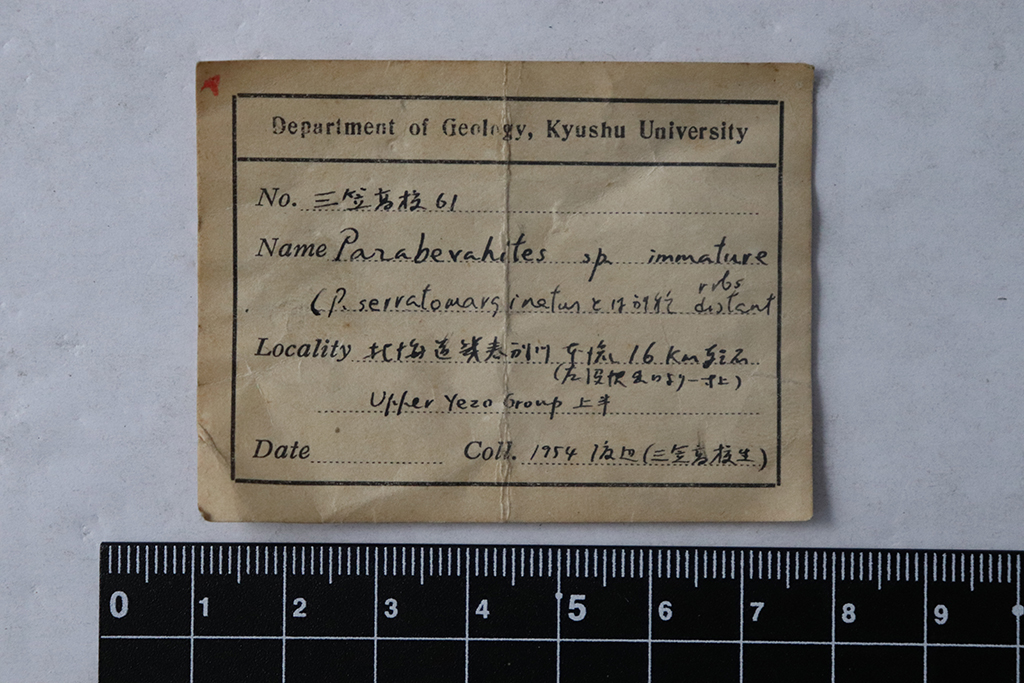 Department of Geology, Kyushu University
No. 三笠高校 61
Name Parabevahites sp immature
ribs
(P. serratomarginatus とは別種 distant
Locality 北海道幾春別川 本流 16 Km 転石
Upper Yezo Group 上半
Date Coll. 1954 渡辺 (三笠高校生)
0 1 2 3 4 5 6 7 8 9